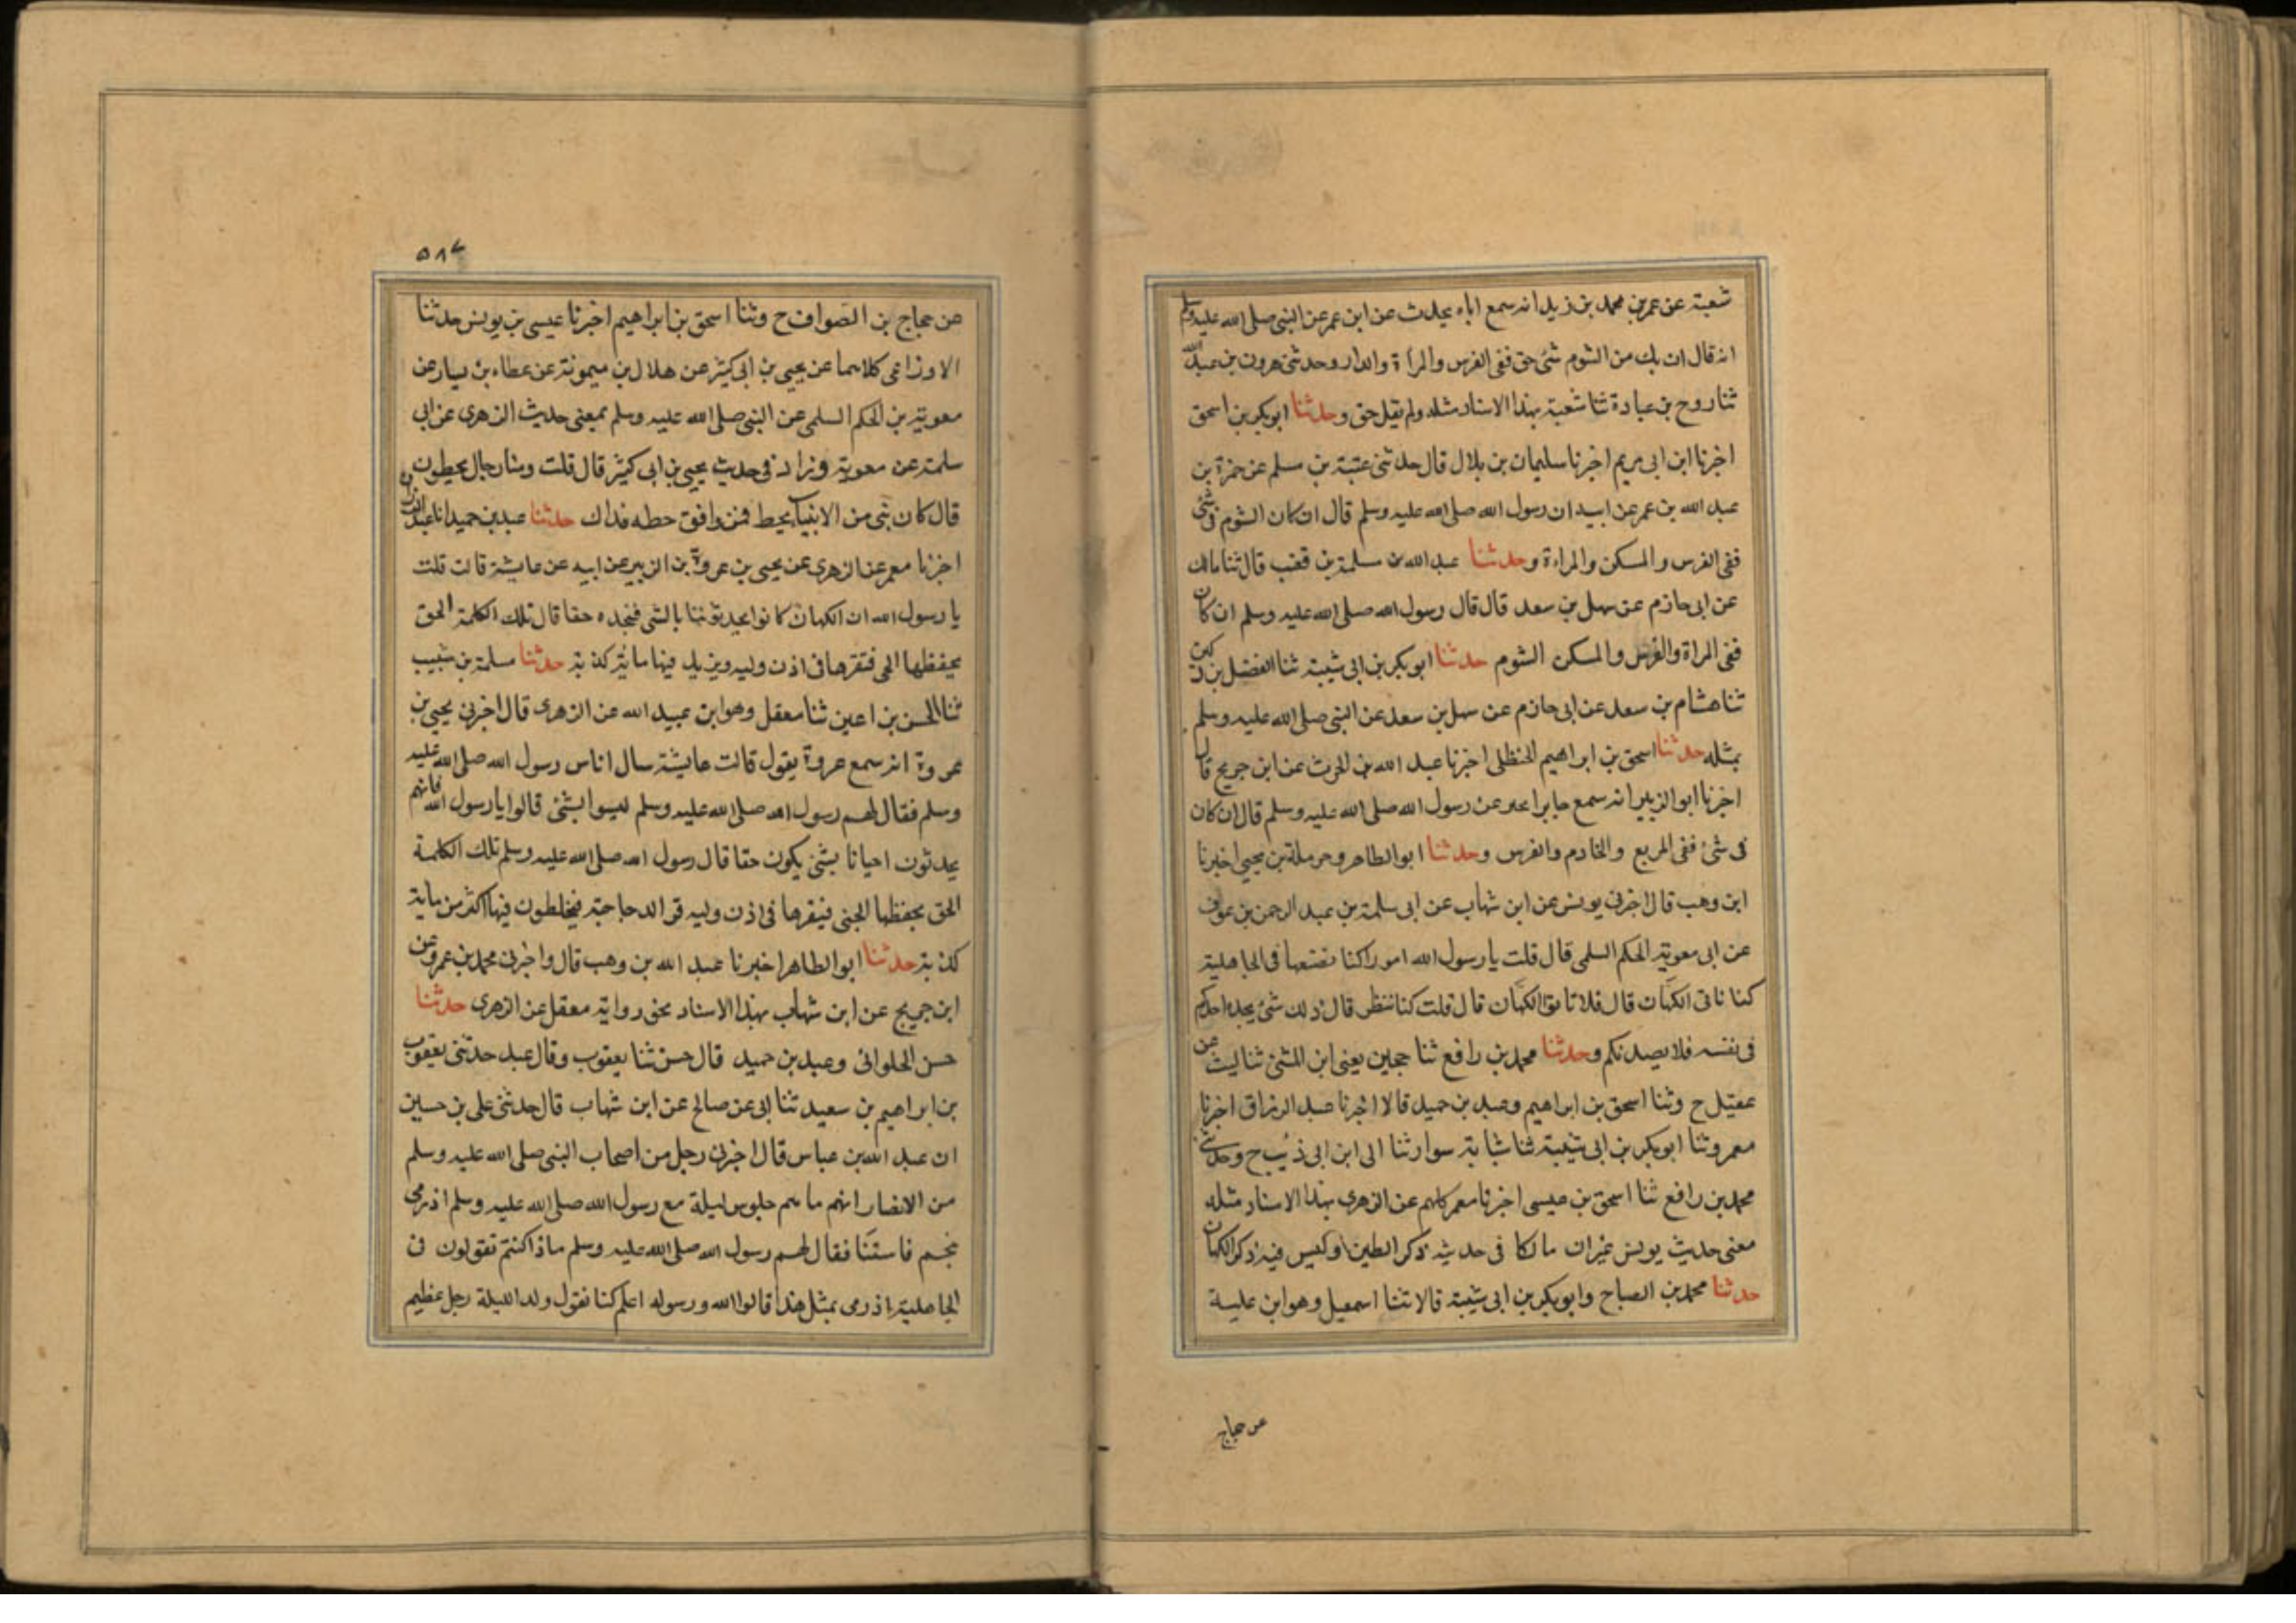 شعبة عن عمر بن محمد بن زيد انه سمع اباه يحدث عن ابن عمر عن النبي صلى الله عليه وسلم
انه قال ان يك من الشوم شئ حق ففى الفرس والمرأة والدار وحدثنى هرون بن عبد الله
ثنا روح بن عبادة ثنا شعبة بهذا الاسناد مثله ولم يقل حق وحدثنا ابوبكر بن اسحق
اخبرنا ابن ابى مريم اخبرنا سليمان بن بلال قال حدثنى عتبة بن مسلم عن حمزة بن
عبد الله بن عمر عن ابيه ان رسول الله صلى الله عليه وسلم قال ان كان الشوم فى شئ
ففى الفرس والمسكن والمراءة وحدثنا عبد الله بن مسلمة بن قعنب قال ثنا مالك
عن ابى حازم عن سهل بن سعد قال قال رسول الله صلى الله عليه وسلم ان كان
ففى المراة والفرس والمسكن الشوم حدثنا ابوبكر بن ابى شيبة ثنا الفضل بن دكين
ثنا هشام بن سعد عن ابى حازم عن سهل بن سعد عن النبى صلى الله عليه وسلم
بمثله حدثنا اسحق بن ابراهيم الحنظلى اخبرنا عبد الله بن الحرث عن ابن جريج قال
اخبرنا ابو الزبير انه سمع جابرا يخبر عن رسول الله صلى الله عليه وسلم قال ان كان
فى شئ ففى الربع والخادم والفرس وحدثنا ابوالطاهر وحرملة بن يحيى اخبرنا
ابن وهب قال اخبرنى يونس عن ابن شهاب عن ابى سلمة بن عبد الرحمن بن عوف
عن ابى معوية الحكم السلمى قال قلت يا رسول الله امورا كنا نصنعها فى الجاهلية
كنا ناتى الكهان قال فلا تاتوا الكهان قال قلت كنا نتطير قال ذلك شئ يجده احدكم
فى نفسه فلا يصدنكم وحدثنا محمد بن رافع ثنا حجين يعنى ابن المثنى ثنا ليث عن
عقيل ح وثنا اسحق بن ابراهيم وعبد بن حميد قالا اخبرنا عبد الرزاق اخبرنا
معمر وثنا ابوبكر بن ابى شيبة ثنا شبابة سوار ثنا ابن ابى ذئب ح وحدثنى
محمد بن رافع ثنا اسحق بن عيسى اخبرنا معمر كلهم عن الزهرى بهذا الاسناد مثله
معنى حديث يونس غير ان مالكا فى حديثه ذكر الطيرة وليس فيه ذكر الكهان
حدثنا محمد بن الصباح وابوبكر بن ابى شيبة قالا ثنا اسمعيل وهو ابن علية
عن حجاج
٥٨٧
عن حجاج بن الصواف ح وثنا اسحق بن ابراهيم اخبرنا عيسى بن يونس حدثنا
الاوزاعى كلاهما عن يحيى بن ابى كثير عن هلال بن ميمونة عن عطاء بن يسار عن
معوية بن الحكم السلمى عن النبى صلى الله عليه وسلم بمعنى حديث الزهرى عن ابى
سلمة عن معوية وزاد فى حديث يحيى بن ابى كثير قال قلت ومنا رجال يخطون
قال كان نبى من الانبياء يخط فمن وافق خطه فذاك حدثنا عبد بن حميد انا عبد الرزاق
اخبرنا معمر عن الزهرى عن يحيى بن عروة بن الزبير عن ابيه عن عايشة قالت قلت
يا رسول الله ان الكهان كانوا يحدثوننا بالشى فنجده حقا قال تلك الكلمة الحق
يحفظها الجى فتقرها فى اذن وليه ويزيد فيها ماية كذبة حدثنا سلمة بن شبيب
ثنا الحسن بن اعين ثنا معقل وهو ابن عبيد الله عن الزهرى قال اخبرنى يحيى بن
عروة انه سمع عروة يقول قالت عايشة سال اناس رسول الله صلى الله عليه
وسلم فقال لهم رسول الله صلى الله عليه وسلم ليسوا بشئ قالوا يا رسول الله فانهم
يحدثون احيانا بشئ يكون حقا قال رسول الله صلى الله عليه وسلم تلك الكلمة
الحق يحفظها الجنى فيقرها فى اذن وليه قر الدجاجة فيخلطون فيها اكثر من ماية
كذبة حدثنا ابو الطاهر اخبرنا عبد الله بن وهب قال واخبرنى محمد بن عمرو عن
ابن جريج عن ابن شهاب بهذا الاسناد نحو رواية معقل عن الزهرى حدثنا
حسن الحلوانى وعبد بن حميد قال حسن ثنا يعقوب وقال عبد حدثنى يعقوب
بن ابراهيم بن سعيد ثنا ابى عن صالح عن ابن شهاب قال حدثنى على بن حسين
ان عبد الله بن عباس قال اخبرنى رجل من اصحاب النبى صلى الله عليه وسلم
من الانصار انهم ما هم جلوس ليلة مع رسول الله صلى الله عليه وسلم اذ رمى
بنجم فاستنا فقال لهم رسول الله صلى الله عليه وسلم ماذا كنتم تقولون فى
الجاهلية اذ رمى بمثل هذا قالوا الله ورسوله اعلم كنا نقول ولد الليلة رجل عظيم